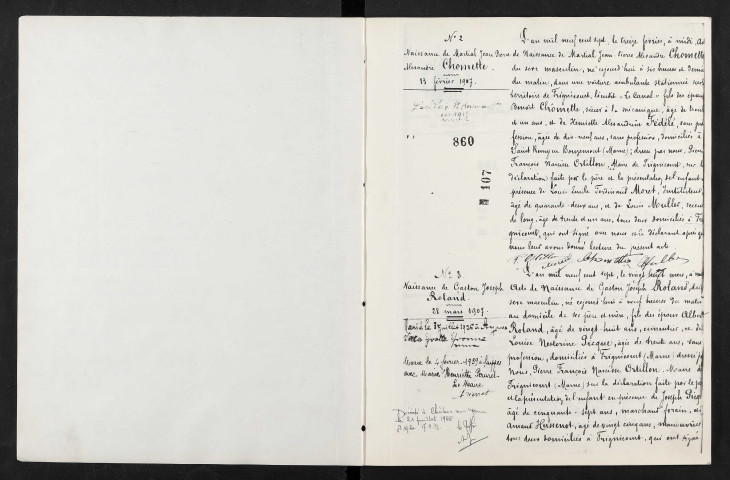 N° 2
Naissance de Martial Jean Pierre
Alexandre Chomette.
13 février 1907.
860
107
L'an mil neuf cent sept, le treize février, à midi, Acte
de Naissance de Martial Jean Pierre Alexandre Chomette
du sexe masculin, né cejourd'hui à six heures et demie
du matin, dans une voiture ambulante stationnée sur le
territoire de Frignicourt, lieudit "Le Canal" fils des époux
Benoit Chomette, scieur à la mécanique, âgé de trente
et un ans, et de Henriette Alexandrine Fédélé, sans pro
fession, âgée de dix-neuf ans, sans profession, domiciliés à
Saint Remy en Bouzemont (Marne); dressé par nous, Pierre
François Narcisse Ortillon, Maire de Frignicourt, sur la
déclaration faite par le père et la présentation de l'enfant en
présence de Louis Emile Ferdinand Moret, Instituteur,
âgé de quarante-deux ans, et de Louis Muller, scieur
de long, âgé de trente et un ans, tous deux domiciliés à Fri
gnicourt, qui ont signé avec nous et le déclarant après que
nous leur avons donné lecture du présent acte.
Ortillon Moret Chomette Muller
N° 3
Naissance de Gaston Joseph
Roland.
28 mars 1907.
Marié le 4 février 1939 à
avec Marie Henriette
Le Maire
Décédé à Châlons sur Marne
le 21 juillet 1966
L'an mil neuf cent sept, le vingt huit mars, à midi
Acte de Naissance de Gaston Joseph Roland, du
sexe masculin, né cejourd'hui à neuf heures du matin
au domicile de ses père et mère, fils des époux Albert
Roland, âgé de vingt-huit ans, cimentier, et de
Louise Nestorine Picque, âgée de trente ans, sans
profession, domiciliés à Frignicourt (Marne) dressé par
Nous, Pierre François Narcisse Ortillon, Maire de
Frignicourt (Marne) sur la déclaration faite par le père
et la présentation de l'enfant en présence de Joseph
âgé de cinquante-sept ans, marchand forain, et
Amand Hussenot, âgé de vingt cinq ans, manouvrier
tous deux domiciliés à Frignicourt, qui ont signé